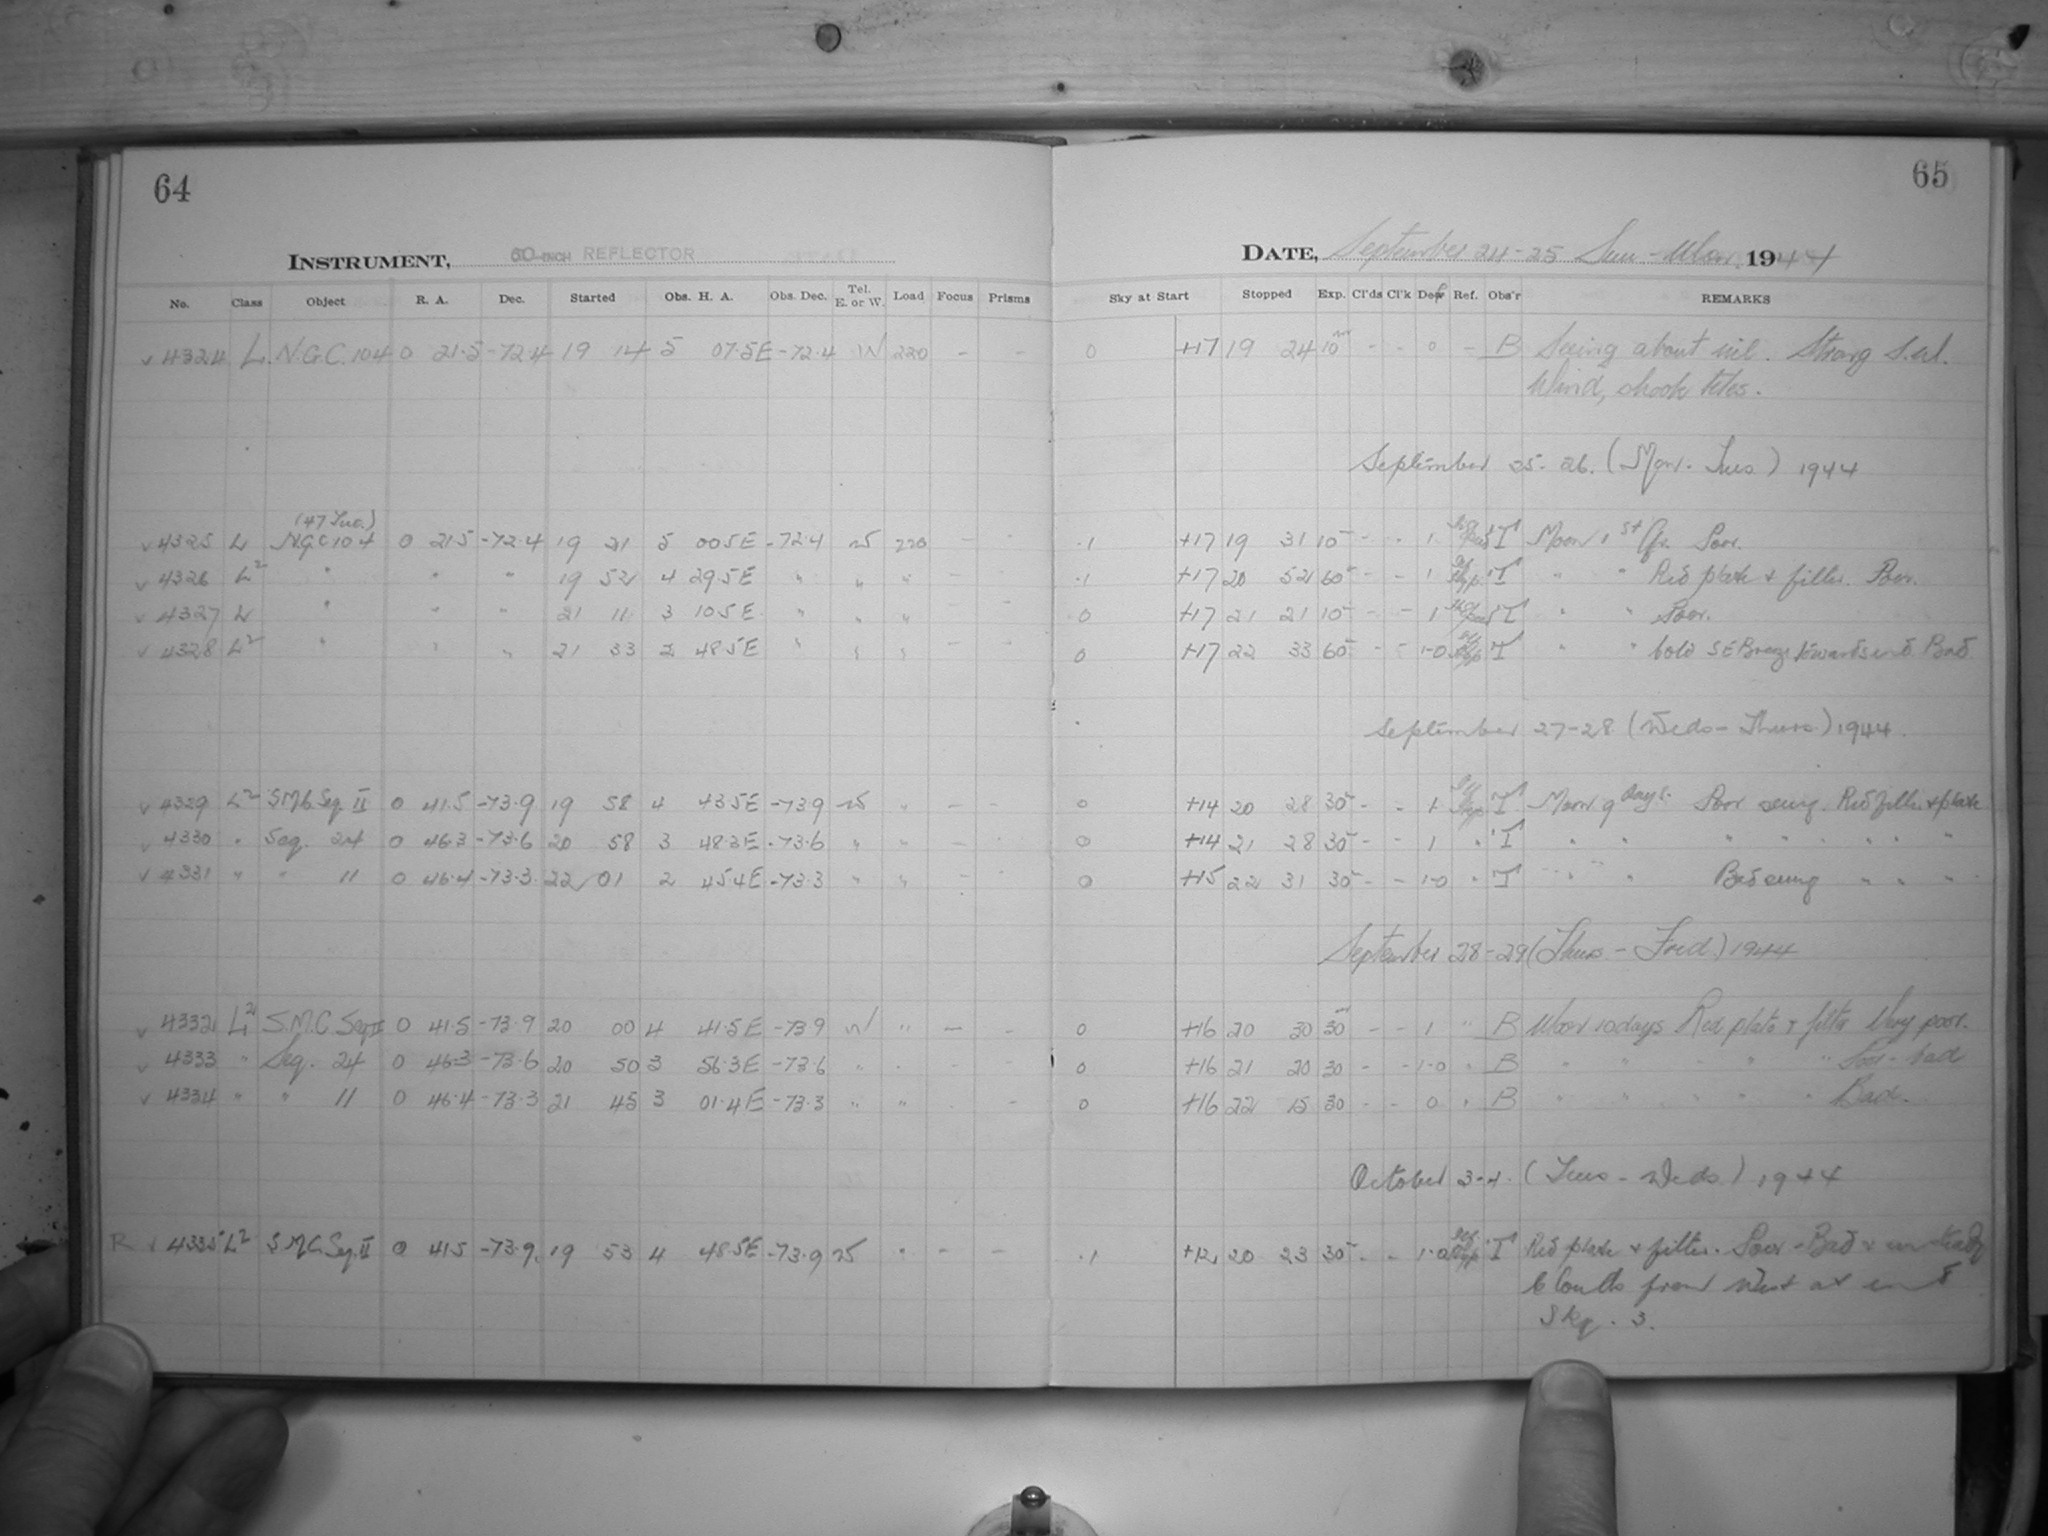 64
65
INSTRUMENT, 60-INCH REFLECTOR
DATE, September 24-25 Sun - Mon. 1944
No. Class Object R. A. Dec. Started Obs. H. A. Obs. Dec. Tel. E. or W. Load Focus Prisms Sky at Start Stopped Exp. Cl'ds Cl'k Dew Ref. Obs'r REMARKS
v 4324 L. N.G.C. 104 0 21.5 -72.4 19 14 5 07.5E -72.4 W 220 - - 0 +17 19 24 10m - - 0 - B Seeing about nil. Strong S.W.
Wind, shook teles.
September 25-26. (Mon. - Tues) 1944
(47 Tuc.)
v 4325 L N.G.C 104 0 21.5 -72.4 19 21 5 00.5E -72.4 W 220 - - .1 +17 19 31 10 - - 1 T Moon 1st Qr. Poor.
v 4326 L2 " " " 19 52 4 29.5E " " " - - .1 +17 20 52 60 - - 1 T " " Red plate + filter. Poor.
v 4327 L " " " 21 11 3 10.5E " " " - - 0 +17 21 21 10 - - 1 T " " Poor.
v 4328 L2 " " " 21 33 2 48.5E " " " - - 0 +17 22 33 60 - - 1-0 T " " Cold SE Breeze towards end. Bad
September 27-28 (Weds - Thurs.) 1944.
v 4329 L2 S.M.C. Seq. II 0 41.5 -73.9 19 58 4 43.5E -73.9 W " - - 0 +14 20 28 30 - - 1 T Moon 9 days. Poor seeing. Red filter + plate
v 4330 " Seq. 24 0 46.3 -73.6 20 58 3 48.3E -73.6 " " - - 0 +14 21 28 30 - - 1 " T " " " " " " "
v 4331 " " 11 0 46.4 -73.3 22 01 2 45.4E -73.3 " " - - 0 +15 22 31 30 - - 1-0 " T " " Bad seeing " " " "
September 28-29 (Thurs - Frid.) 1944
v 4332 L2 S.M.C. Seq II 0 41.5 -73.9 20 00 4 41.5E -73.9 W " - - 0 +16 20 30 30m - - 1 " B Moon 10 days Red plate + filter Very poor.
v 4333 " Seq. 24 0 46.3 -73.6 20 50 3 56.3E -73.6 " " - - 0 +16 21 20 30 - - 1-0 " B " " " " " Poor - bad
v 4334 " " 11 0 46.4 -73.3 21 45 3 01.4E -73.3 " " - - 0 +16 22 15 30 - - 0 " B " " " " " Bad.
October 3-4. (Tues - Weds) 1944
R v 4335 L2 S.M.C. Seq. II 0 41.5 -73.9 19 53 4 48.5E -73.9 W " - - .1 +12 20 23 30 - - 1-0 T Red plate + filter. Poor - Bad + unsteady
Clouds from West at end
Sky .3.